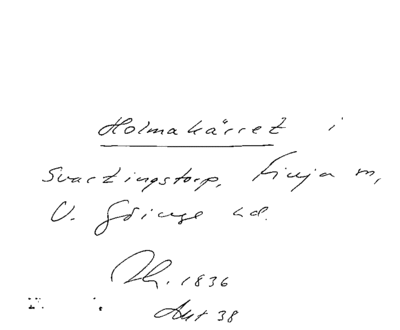 Holmakärret i
Svartingstorp, Finja m,
V. Göinge hd.
1836
Akt 38